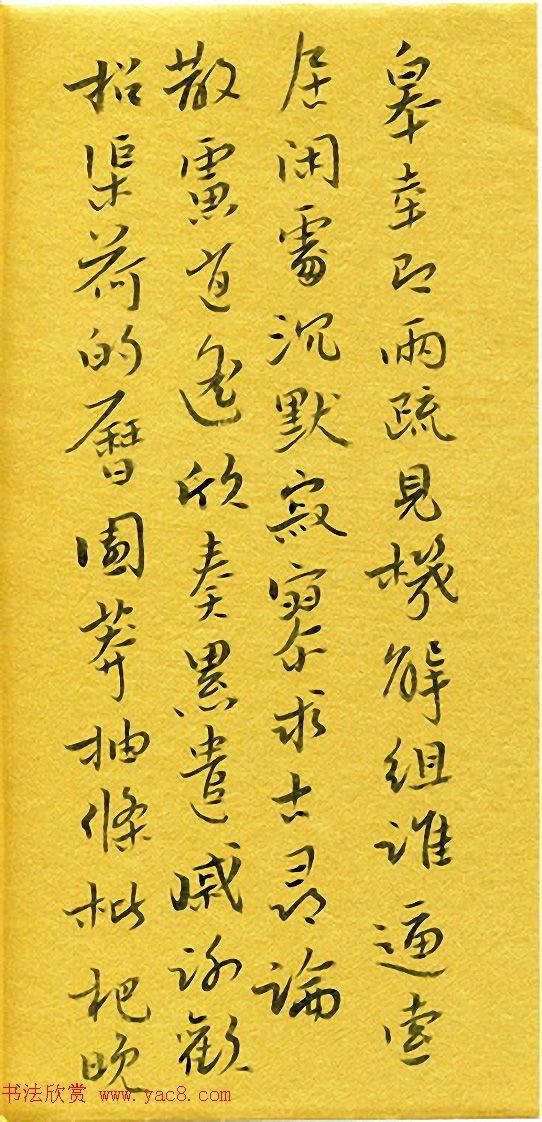 皋幸即兩疏見機解組誰逼索
居闲處沉默寂寥求古尋論
散慮逍遙欣奏累遣慼謝歡
招渠荷的曆園莽抽條枇杷晚
书法欣赏 www.yac8.com